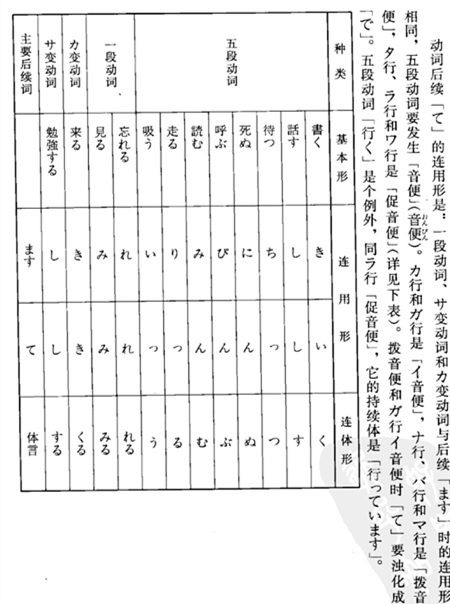 动词后续「て」的连用形是：一段动词、サ变动词和カ变动词与后续「ます」时的连用形
相同，五段动词要发生「音便」(音便)。カ行和ガ行是「イ音便」，ナ行、バ行和マ行是「拨音
おんびん
便」，タ行、ラ行和ワ行是「促音便」(详见下表)。拨音便和ガ行イ音便时「て」要浊化成
「で」。五段动词「行く」是个例外，同ラ行「促音便」，它的持续体是「行っています」。
种类 基本形 连用形 连体形
五段动词 書く き い く
話す し し す
待つ ち っ つ
死ぬ に ん ぬ
呼ぶ び ん ぶ
読む み ん む
走る り っ る
吸う い っ う
一段动词 忘れる れ れ れる
見る み み みる
カ变动词 来る き き くる
サ变动词 勉強する し し する
主要后续词 ます て 体言